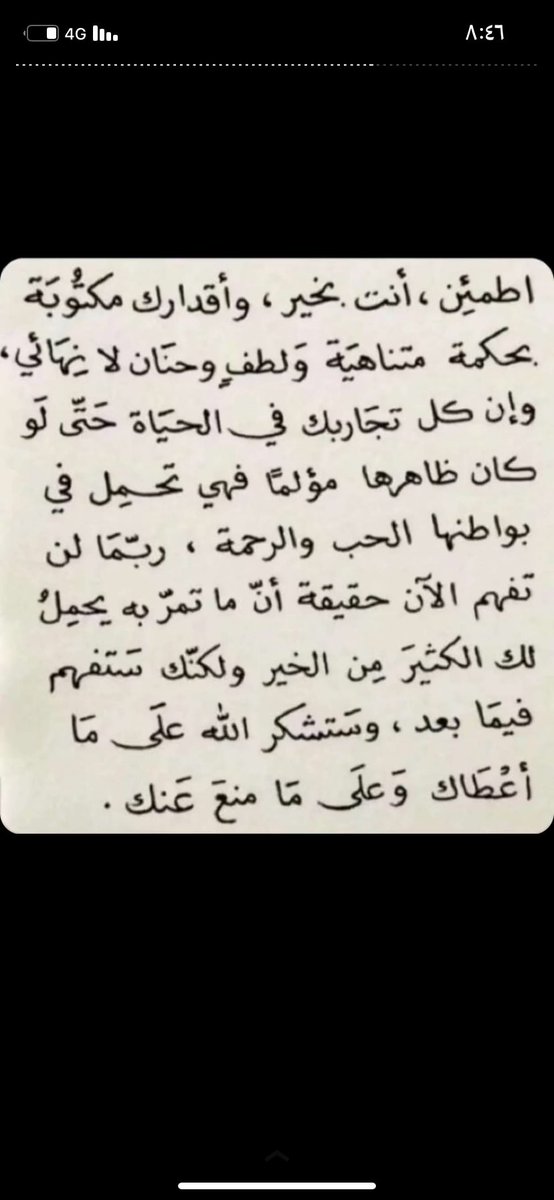 4G ٨:٤٦
اطمئِن ، أنت بخير ، وأقدارك مكتُوبَة
بحكمة متناهيَة وَلطفٍ وحنَان لا نِهَائي،
وإن كل تجَاربك في الحيَاة حَتّى لَو
كان ظاهرها مؤلمًا فهي تحمِل في
بواطنها الحب والرحمة ، ربّمَا لن
تفهم الآن حقيقة أنّ ما تمرّ به يحمِلُ
لك الكثيرَ مِن الخير ولكنّك سَتفهم
فيمَا بعد ، وسَتشكر الله علَى مَا
أعْطَاك وَعلَى مَا منعَ عَنك .